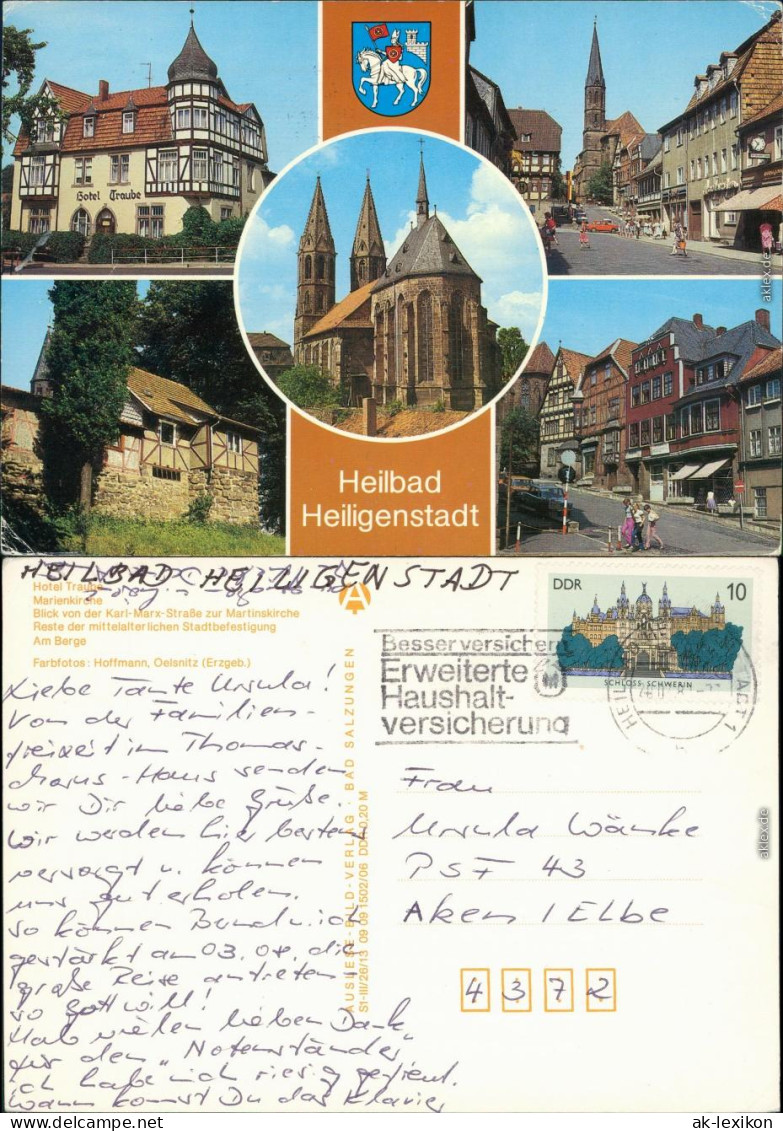 Hotel Traube
Heilbad
Heiligenstadt
aklex.de
HEILBAD HEILIGENSTADT
Hotel Traube
Marienkirche
Blick von der Karl-Marx-Straße zur Martinskirche
Reste der mittelalterlichen Stadtbefestigung
Am Berge
Farbfotos: Hoffmann, Oelsnitz (Erzgeb.)
Liebe Tante Ursula!
Von der Familien-
freizeit im Thomas-
Morus-Haus senden
wir Dir liebe Grüße.
Wir werden hier bestens
versorgt u. können
uns gut erholen.
so können Bernd u. ich
gestärkt am 03.08. die
große Reise antreten -
so Gott will!
Hab vielen lieben Dank
für den "Notenständer,
ich habe mich riesig gefreut.
Wann kommst Du das Klavier
A
AUSLESE-BILD-VERLAG · BAD SALZUNGEN
SI-III/26/13 09 09 1502/06 DDR 0,20 M
Besser versichert
Erweiterte
Haushalt-
versicherung
DDR 10
SCHLOSS SCHWERIN
Frau
Ursula
PSF 43
Aken / Elbe
4372
aklex.de
www.delcampe.net
ak-lexikon